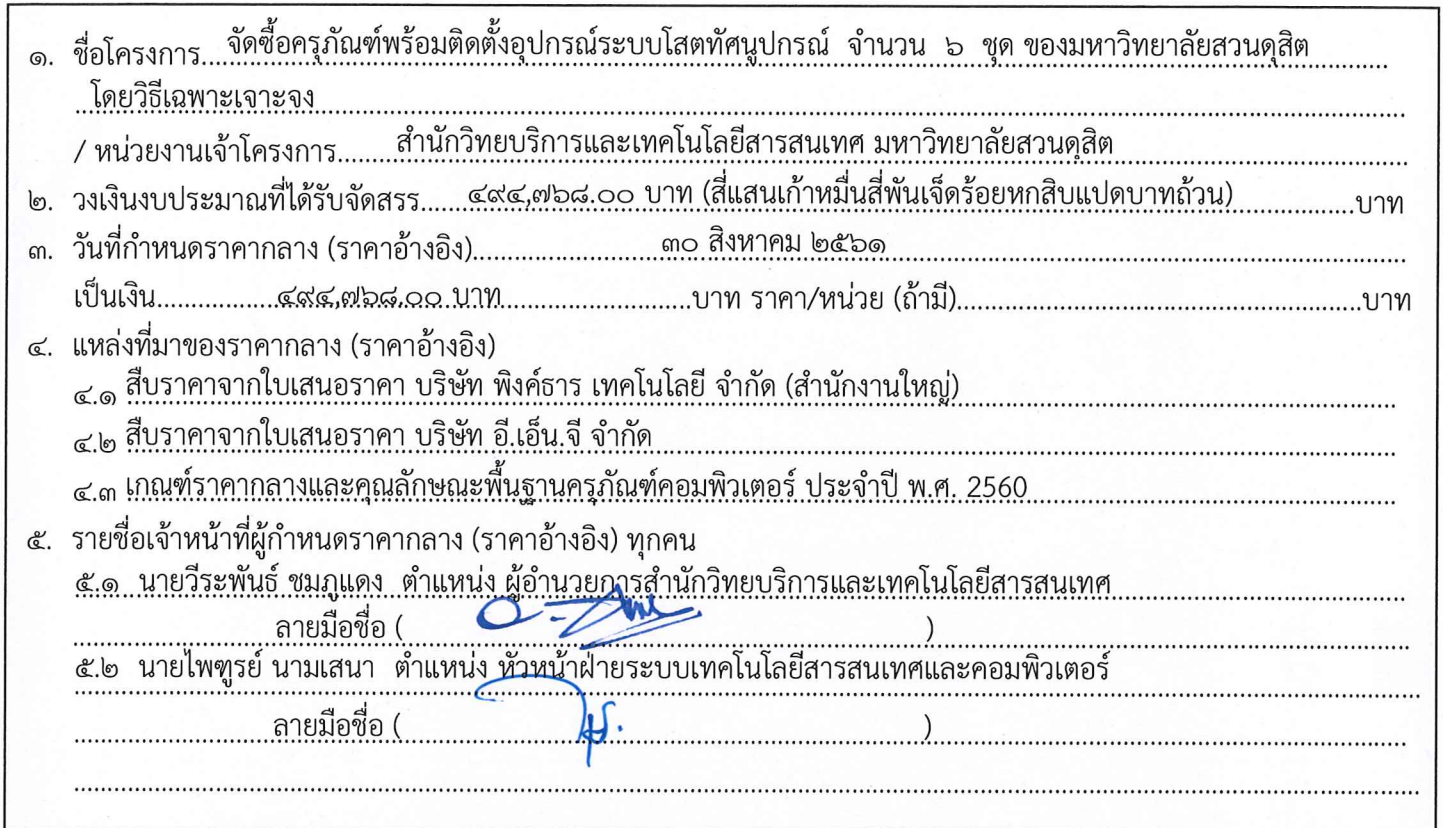 ๑. ชื่อโครงการ....จัดซื้อครุภัณฑ์พร้อมติดตั้งอุปกรณ์ระบบโสตทัศนูปกรณ์ จำนวน ๖ ชุด ของมหาวิทยาลัยสวนดุสิต
โดยวิธีเฉพาะเจาะจง
/ หน่วยงานเจ้าโครงการ........สำนักวิทยบริการและเทคโนโลยีสารสนเทศ มหาวิทยาลัยสวนดุสิต
๒. วงเงินงบประมาณที่ได้รับจัดสรร......๔๙๔,๗๖๘.๐๐ บาท (สี่แสนเก้าหมื่นสี่พันเจ็ดร้อยหกสิบแปดบาทถ้วน)................บาท
๓. วันที่กำหนดราคากลาง (ราคาอ้างอิง)..........................๓๐ สิงหาคม ๒๕๖๑
เป็นเงิน.................๔๙๔,๗๖๘.๐๐ บาท.........................บาท ราคา/หน่วย (ถ้ามี).....................................................บาท
๔. แหล่งที่มาของราคากลาง (ราคาอ้างอิง)
๔.๑ สืบราคาจากใบเสนอราคา บริษัท พิงค์ธาร เทคโนโลยี จำกัด (สำนักงานใหญ่)
๔.๒ สืบราคาจากใบเสนอราคา บริษัท อี.เอ็น.จี จำกัด
๔.๓ เกณฑ์ราคากลางและคุณลักษณะพื้นฐานครุภัณฑ์คอมพิวเตอร์ ประจำปี พ.ศ. 2560
๕. รายชื่อเจ้าหน้าที่ผู้กำหนดราคากลาง (ราคาอ้างอิง) ทุกคน
๕.๑ นายวีระพันธ์ ชมภูแดง ตำแหน่ง ผู้อำนวยการสำนักวิทยบริการและเทคโนโลยีสารสนเทศ
ลายมือชื่อ ( )
๕.๒ นายไพฑูรย์ นามเสนา ตำแหน่ง หัวหน้าฝ่ายระบบเทคโนโลยีสารสนเทศและคอมพิวเตอร์
ลายมือชื่อ ( )